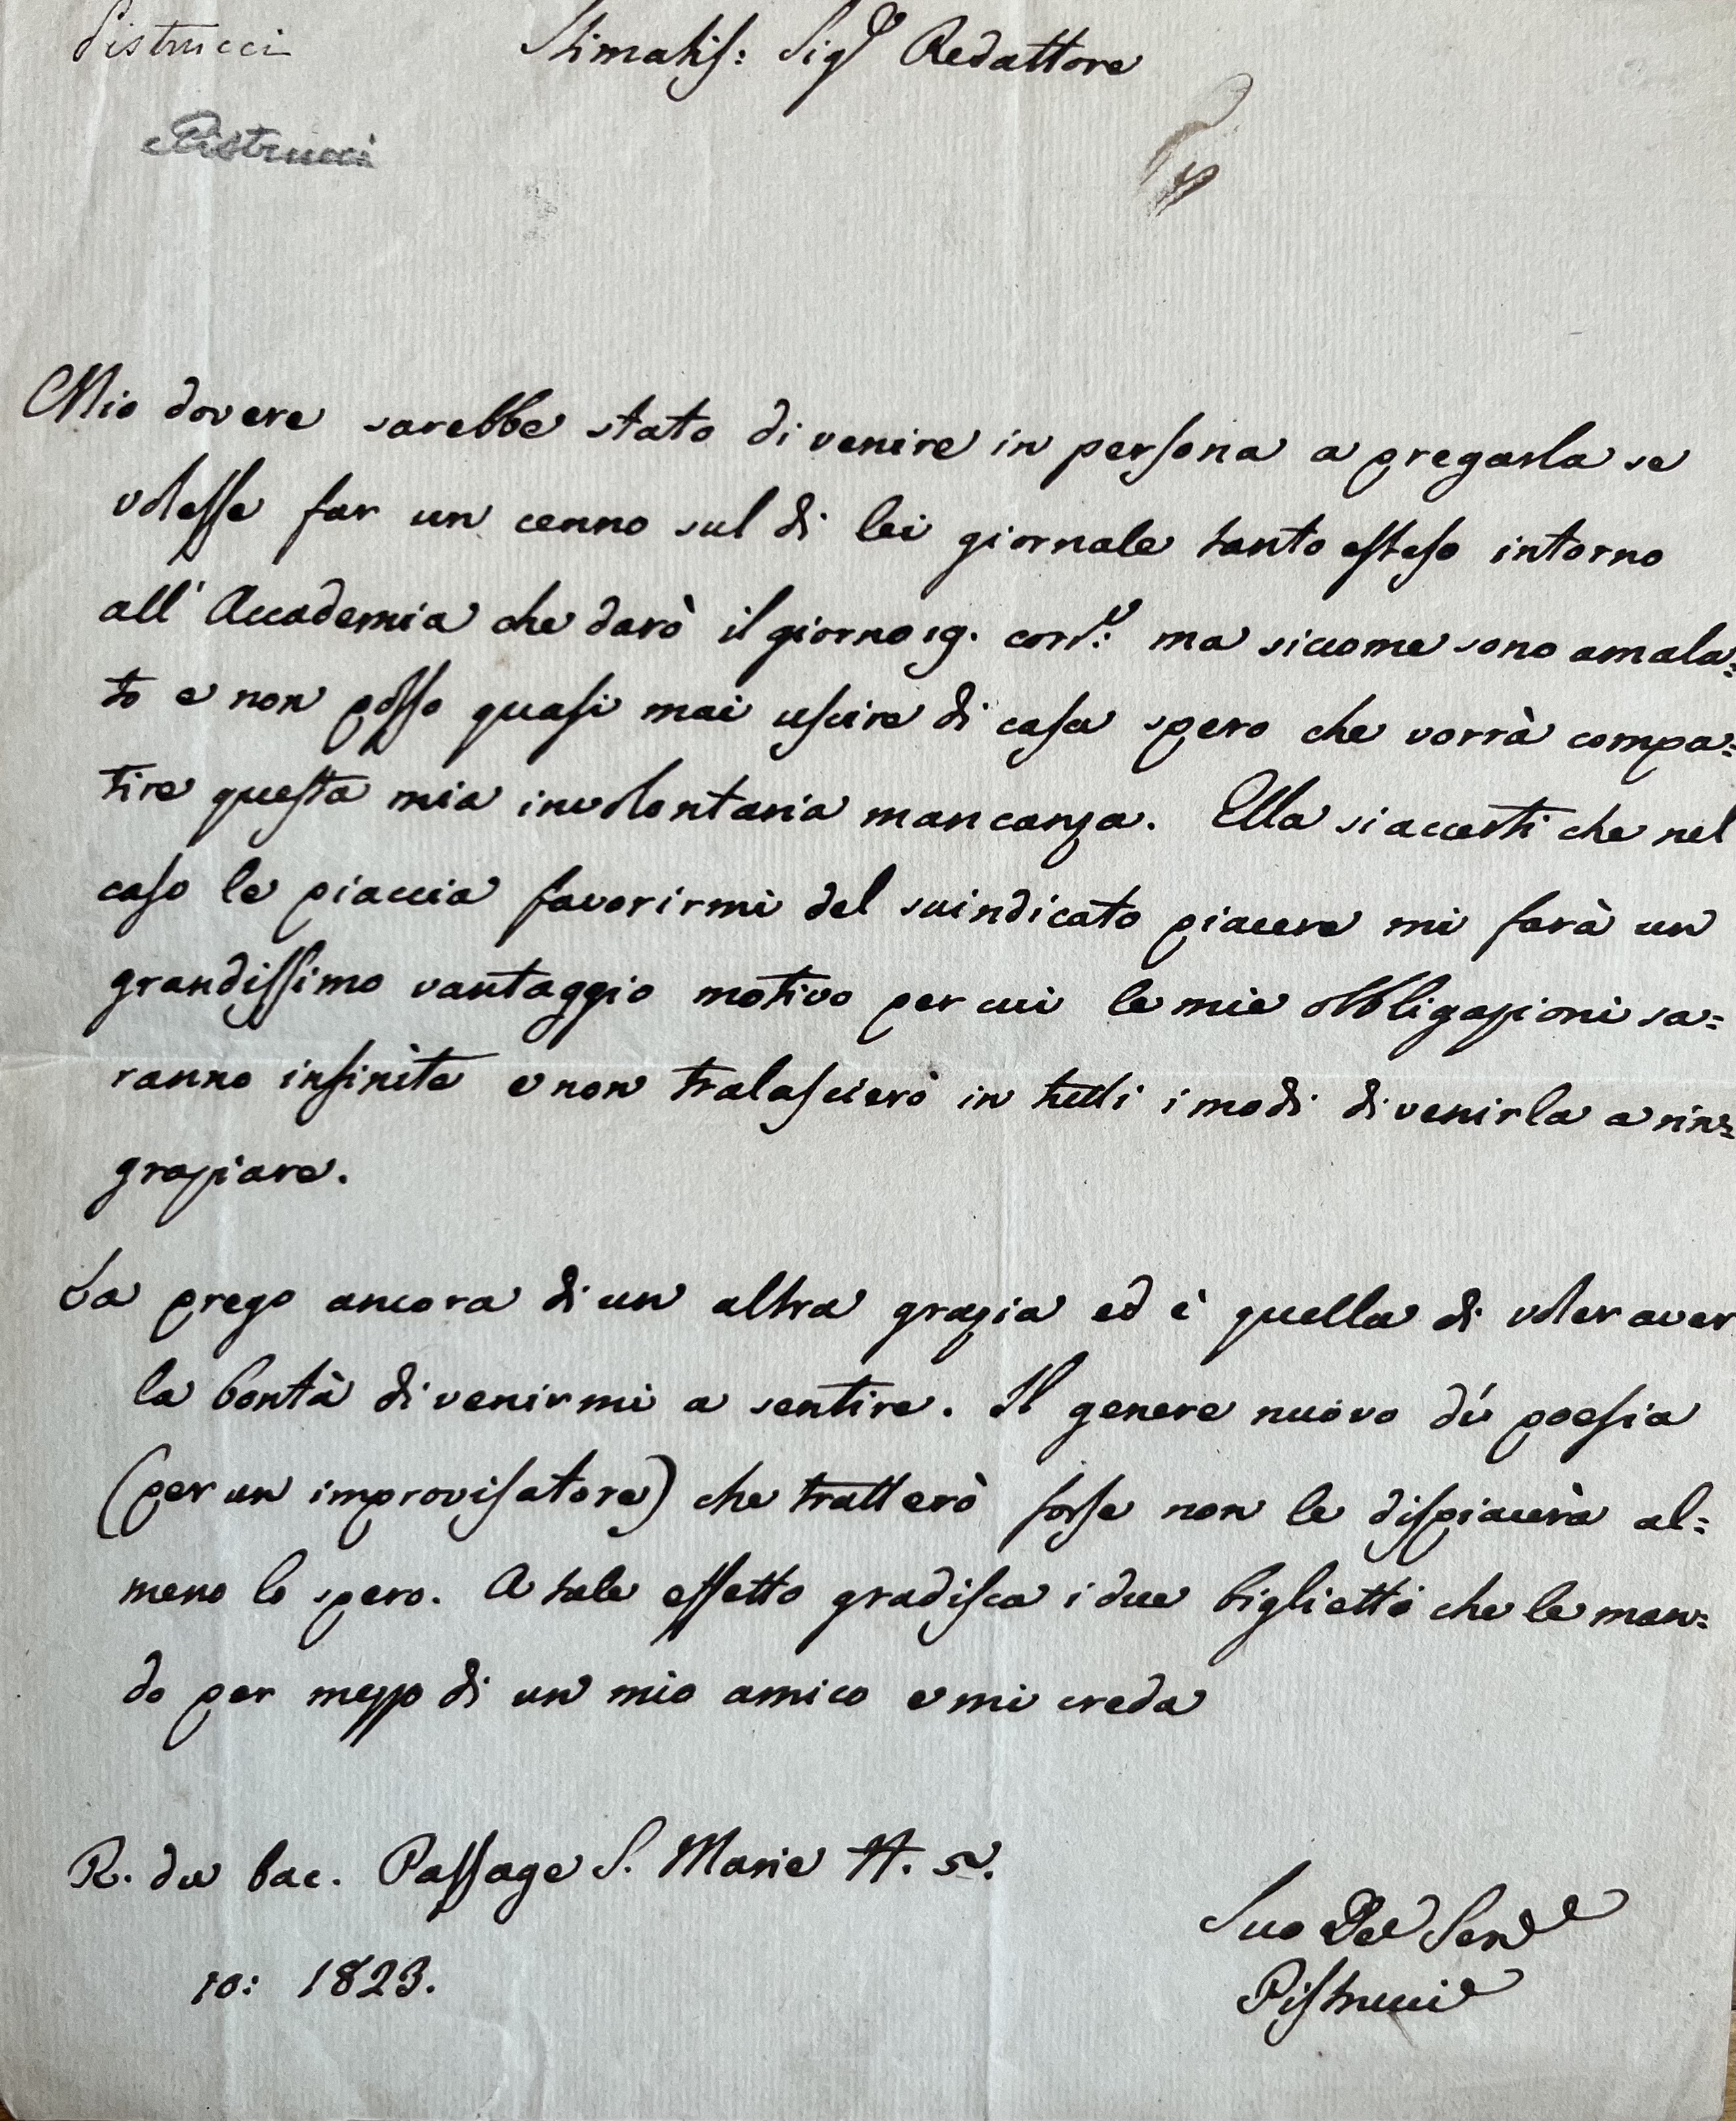 Pistrucci
Stimatis: Sigr Redattore
Pistrucci
Mio dovere sarebbe stato di venire in persona a pregarla se
volesse far un cenno sul di lei giornale tanto esteso intorno
all' Accademia che darò il giorno 19. corr.e: ma siccome sono amala=
to e non posso quasi mai uscire di casa spero che vorrà compa=
tire questa mia involontaria mancanza. Ella si accerti che nel
caso le piaccia favorirmi del suindicato piacere mi farà un
grandissimo vantaggio motivo per cui le mie obbligazioni sa=
ranno infinite e non tralascierò in tutti i modi di venirla a rin=
graziare.
La prego ancora di un altra grazia ed è quella di voler aver
la bontà di venirmi a sentire. Il genere nuovo di poesia
(per un improvisatore) che tratterò forse non le dispiacerà al=
meno lo spero. A tale effetto gradisca i due biglietti che le man=
do per mezzo di un mio amico e mi creda
R. du bac. Passage S. Marie N. 5.
10: 1823.
Suo Serve
Pistrucci